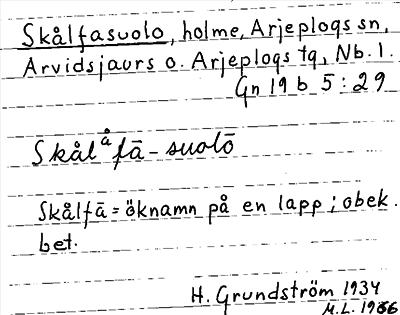 Skålfasuolo, holme, Arjeplogs sn,
Arvidsjaurs o. Arjeplogs tg, Nb. l.
Gn 19 b 5:29
Skålåfā-suolō
Skålfā = öknamn på en lapp; obek.
bet.
H. Grundström 1934
M.L. 1966